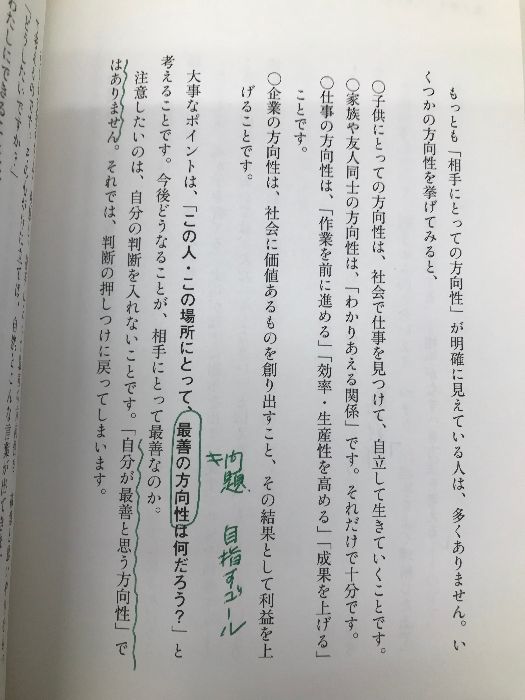 もっとも「相手にとっての方向性」が明確に見えている人は、多くありません。い
くつかの方向性を挙げてみると、
〇子供にとっての方向性は、社会で仕事を見つけて、自立して生きていくことです。
〇家族や友人同士の方向性は、「わかりあえる関係」です。それだけで十分です。
〇仕事の方向性は、「作業を前に進める」「効率・生産性を高める」「成果を上げる」
ことです。
〇企業の方向性は、社会に価値あるものを創り出すこと、その結果として利益を上
げることです。
問題 目指すゴール
大事なポイントは、「この人・この場所にとって、最善の方向性は何だろう？」と
考えることです。今後どうなることが、相手にとって最善なのか。
注意したいのは、自分の判断を入れないことです。「自分が最善と思う方向性」で
はありません。それでは、判断の押しつけに戻ってしまいます。